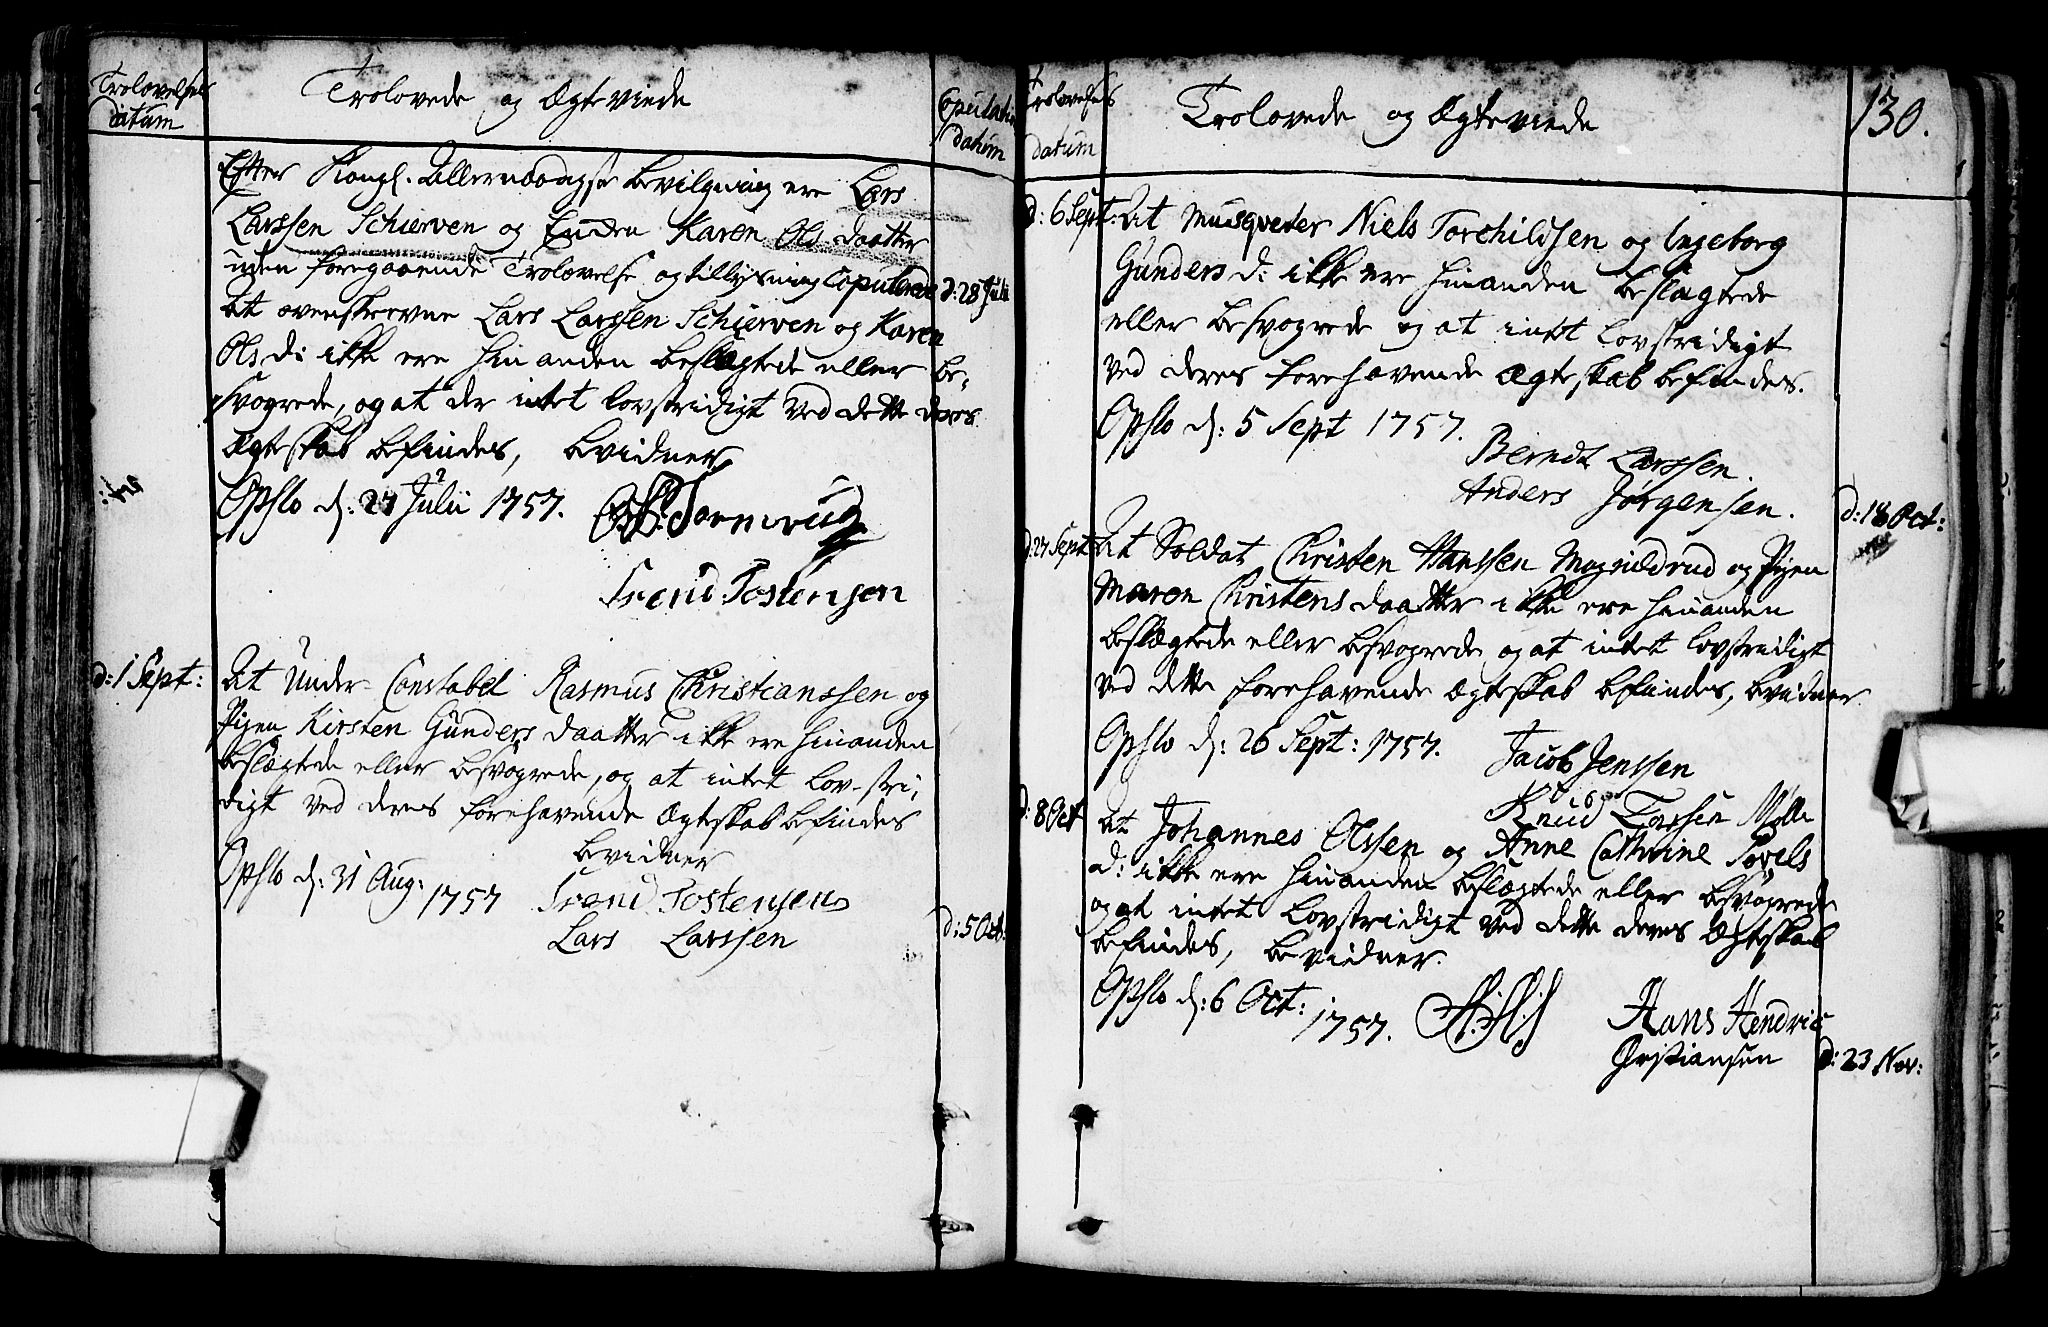 Trolovelses
datum
Trolovede og Ægteviede
Copulatio
datum
Efter Kongl. Allernaadigste Bevilgning ere Lars
Larssen Schierven og Enken Karen Ols daatter
uden foregaaende Trolovelse og tillysning Copulerede
d: 28 Julii
At ovenskrevne Lars Larssen Schierven og Karen
Ols. d: ikke ere hinanden beslægtede eller be-
svogrede, og at der intet lovstridigt ved dette deres
Ægteskab befindes, bevidner
Opslo d: 27 Julii 1757.
Trond Tostensen
d: 1 Sept:
At Under-Constabel Rasmus Christianssen og
Pigen Kirsten Gunders daatter ikke ere hinanden
beslægtede eller besvogrede, og at intet lov-stri-
digt ved deres forehavende Ægteskab befindes
bevidner
Opslo d: 31 Aug: 1757
Trond Tostensen
Lars Larssen
d: 5 Oct:
Trolovelses
datum
Trolovede og Ægteviede
130.
d: 6 Sept:
At Musqveter Niels Torchildsen og Ingeborg
Gunders d: ikke ere hinanden beslægtede
eller besvogrede og at intet lovstridigt
ved deres forehavende Ægteskab befindes.
Opslo d: 5 Sept 1757.
Berndt Larssen.
Anders Jørgensen.
d: 18 Oct:
d: 27 Sept
At Soldat Christen Hanssen og Pigen
Maren Christens daatter ikke ere hinanden
beslægtede eller besvogrede og at intet lovstridigt
ved dette forehavende Ægteskab befindes, bevidner
Opslo d: 26 Sept: 1757.
Jacob Jenssen
Knud Larsen Mølle
d: 8 Oct
At Johannes Olssen og Anne Cathrine Povels
d: ikke ere hinanden beslægtede eller besvogrede
og at intet lovstridigt ved dette deres Ægteskab
befindes, bevidner.
Opslo d: 6 Oct: 1757.
Hans Hendric
Christiansen
d: 23 Nov: